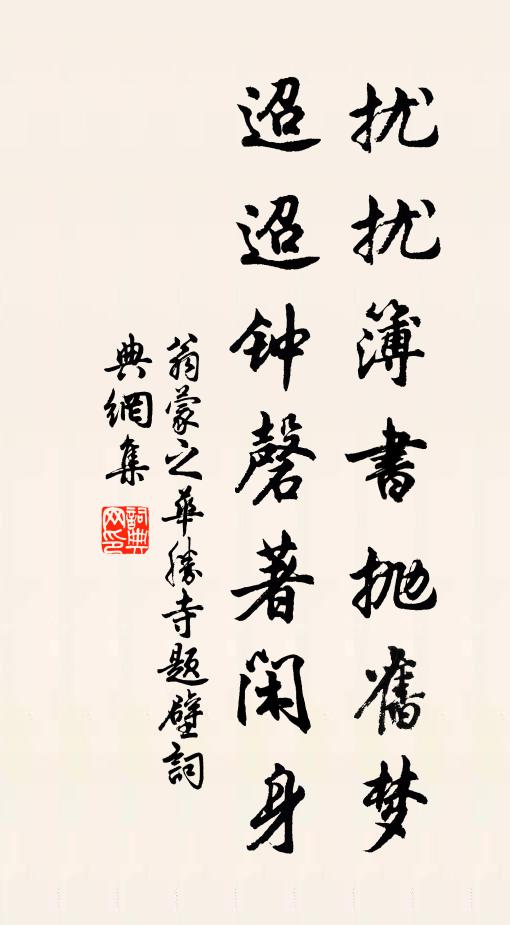 扰扰簿書抛舊梦
迢迢钟磬著闲身
翁蒙之華勝寺题壁詞
典網集
詞典网印